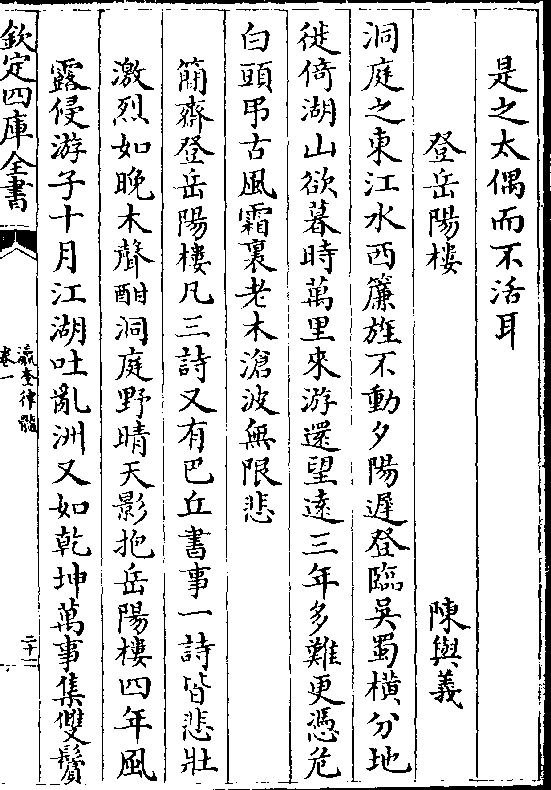 是之太偶而不活耳
登岳陽樓
陳與義
洞庭之東江水西簾旌不動夕陽遲登臨吳蜀横分地
徙倚湖山欲暮時萬里來游還望逺三年多難更憑危
白頭弔古風霜裏老木滄波無限悲
簡齋登岳陽樓凡三詩又有巴丘書事一詩皆悲壯
激烈如晚木聲酣洞庭野晴天影抱岳陽樓四年風
露侵游子十月江湖吐亂洲又如乾坤萬事集雙鬢
欽定四庫全書
瀛奎律髓
卷一
二十一